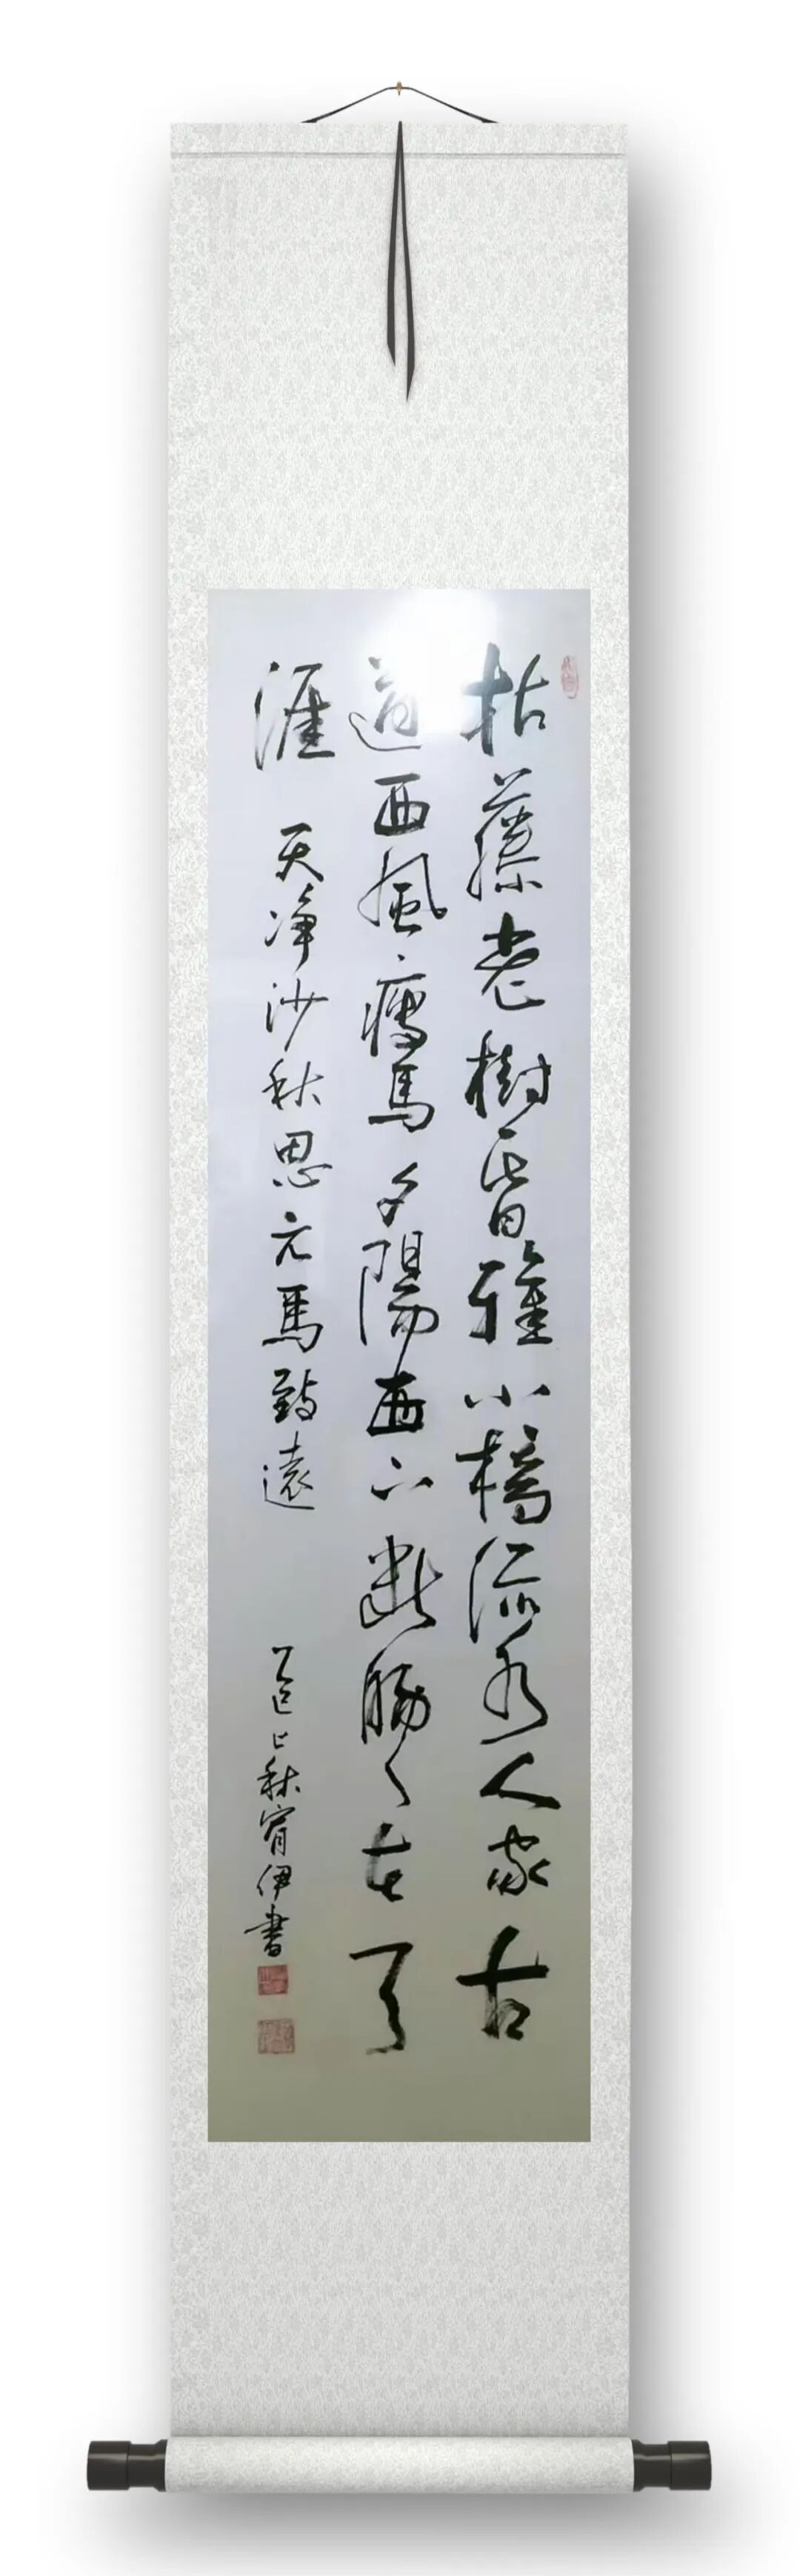 枯藤老樹昏雅小橋流水人家古
道西風瘦馬夕陽西下斷腸人在天
涯 天净沙秋思元馬致遠
乙巳秋甯伊書